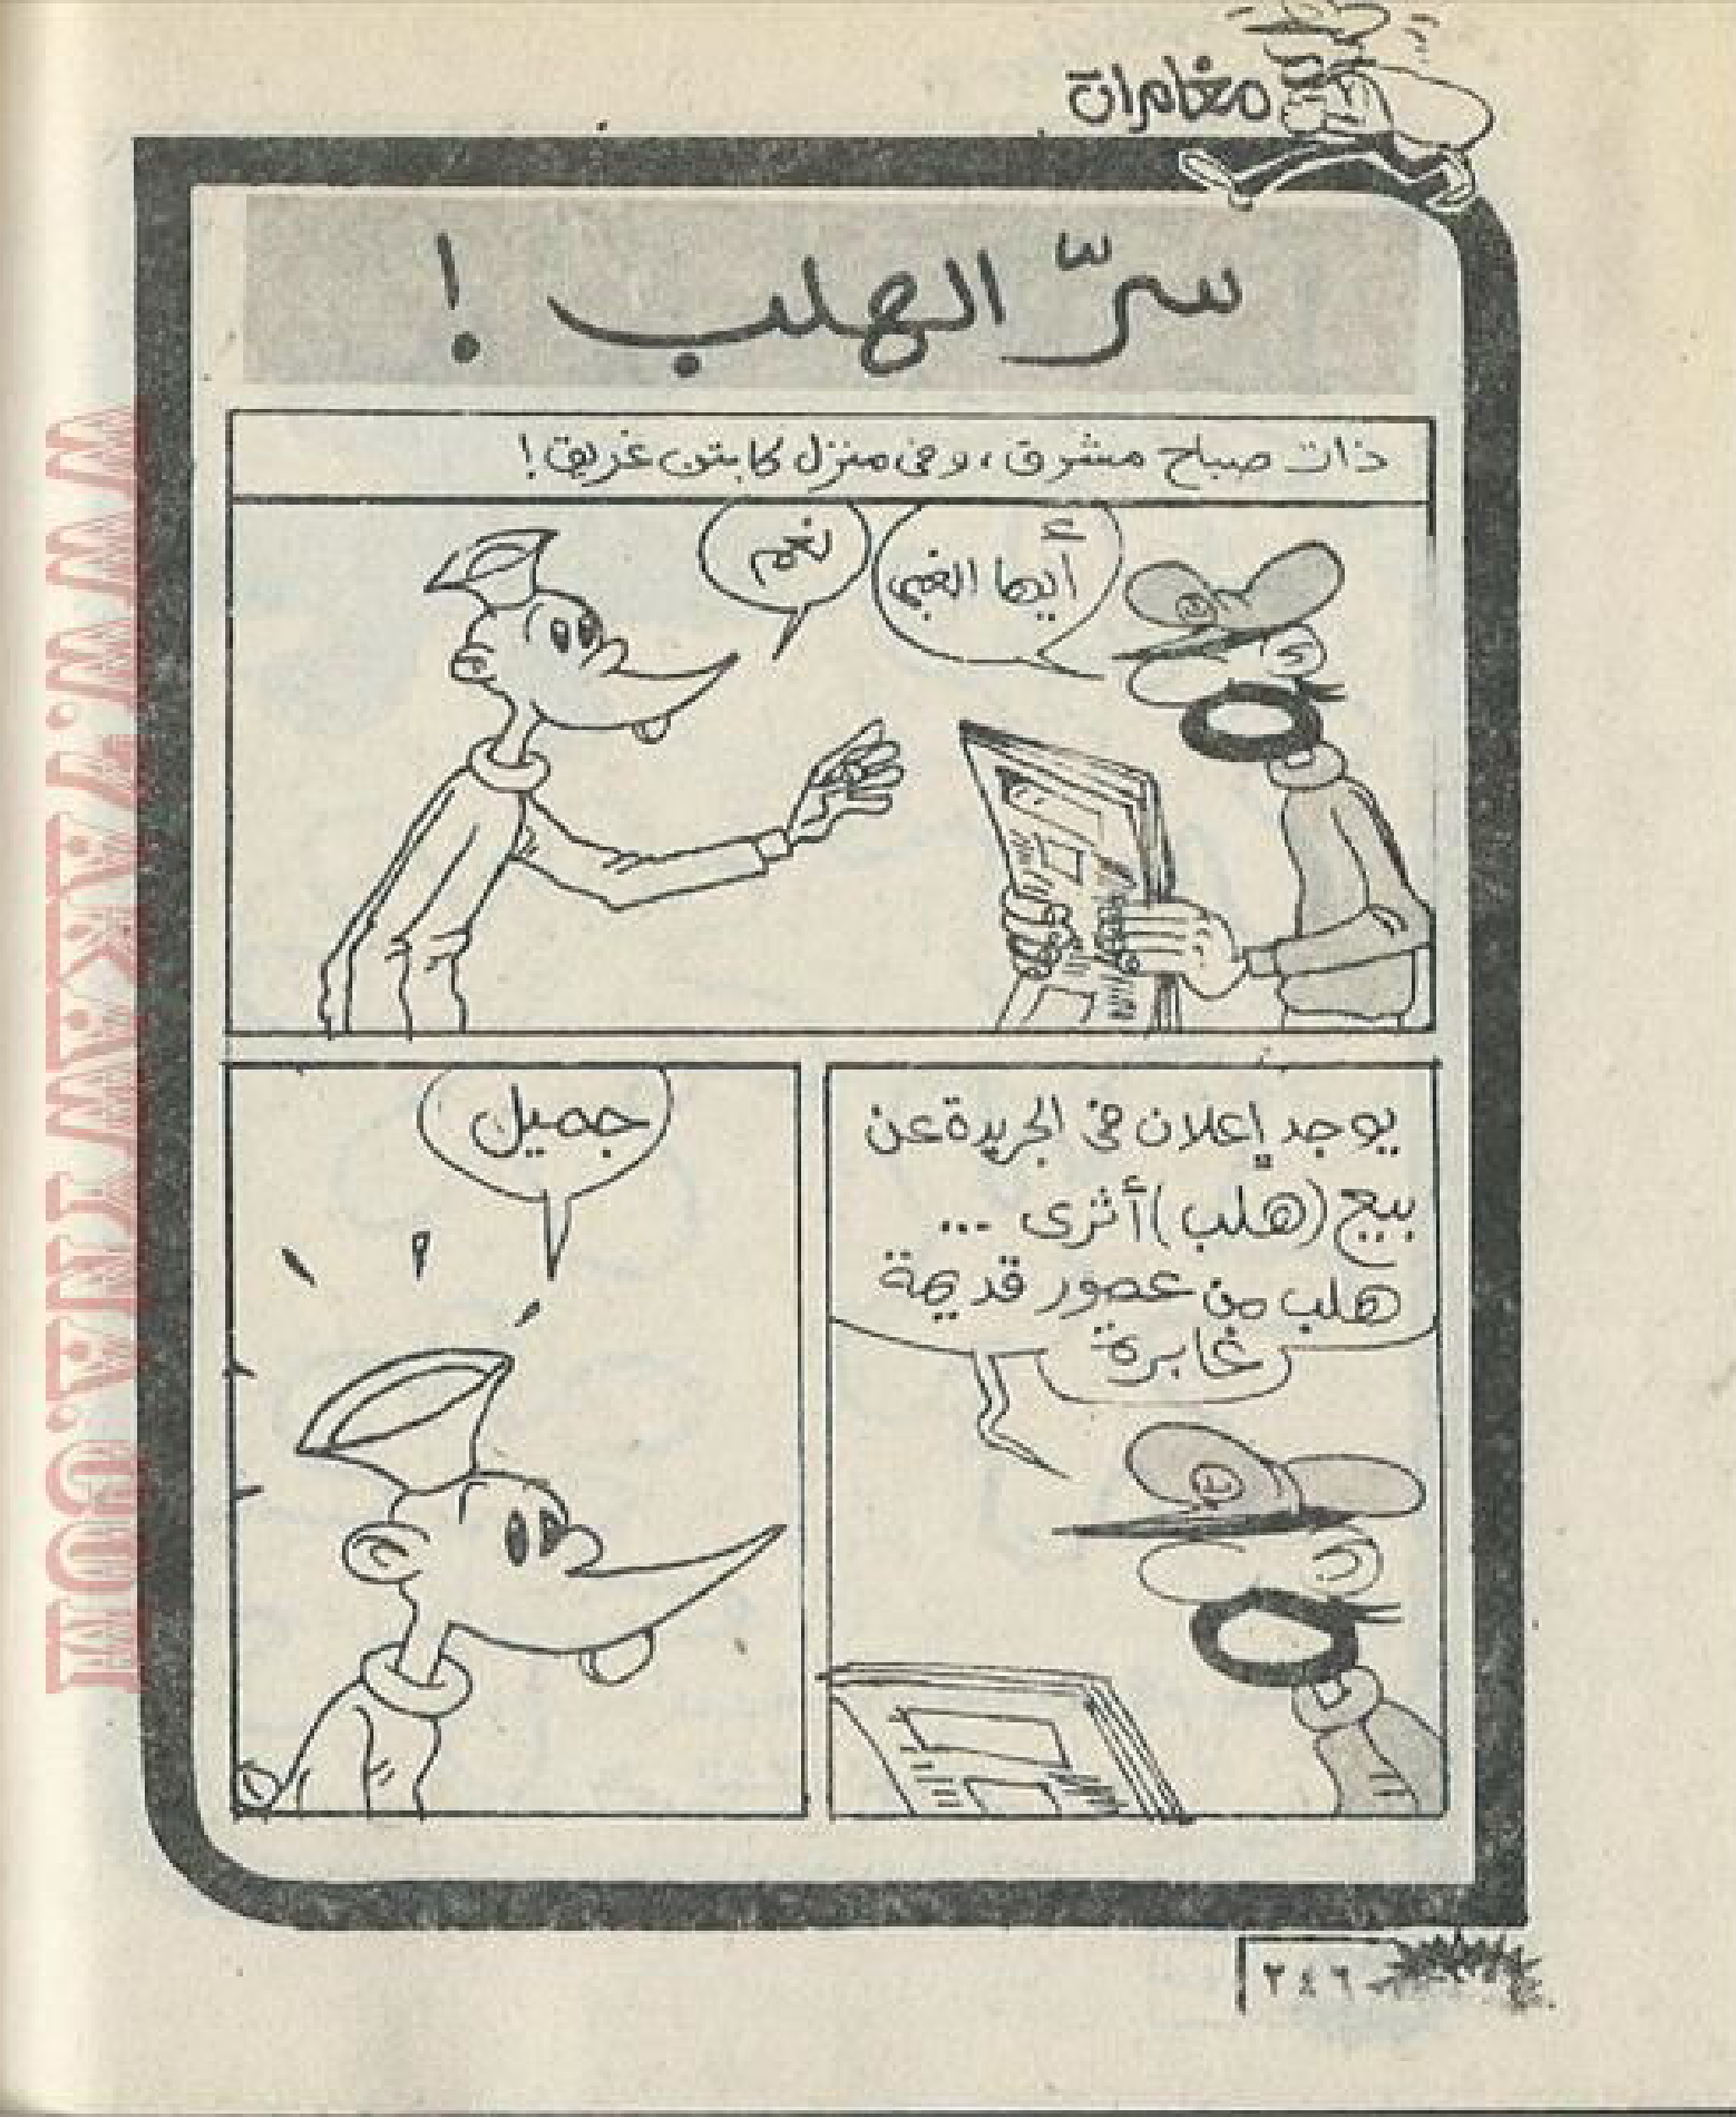 مغامرات
سرّ الهلب !
ذات صباح مشرق، وفى منزل كابتن غريق!
أيها الغبى
نعم
يوجد إعلان فى الجريدة عن
بيع (هلب) أثرى ...
هلب من عصور قديمة
غابرة
جميل
٢٤٦
WWW.7AKAWYNA.COM